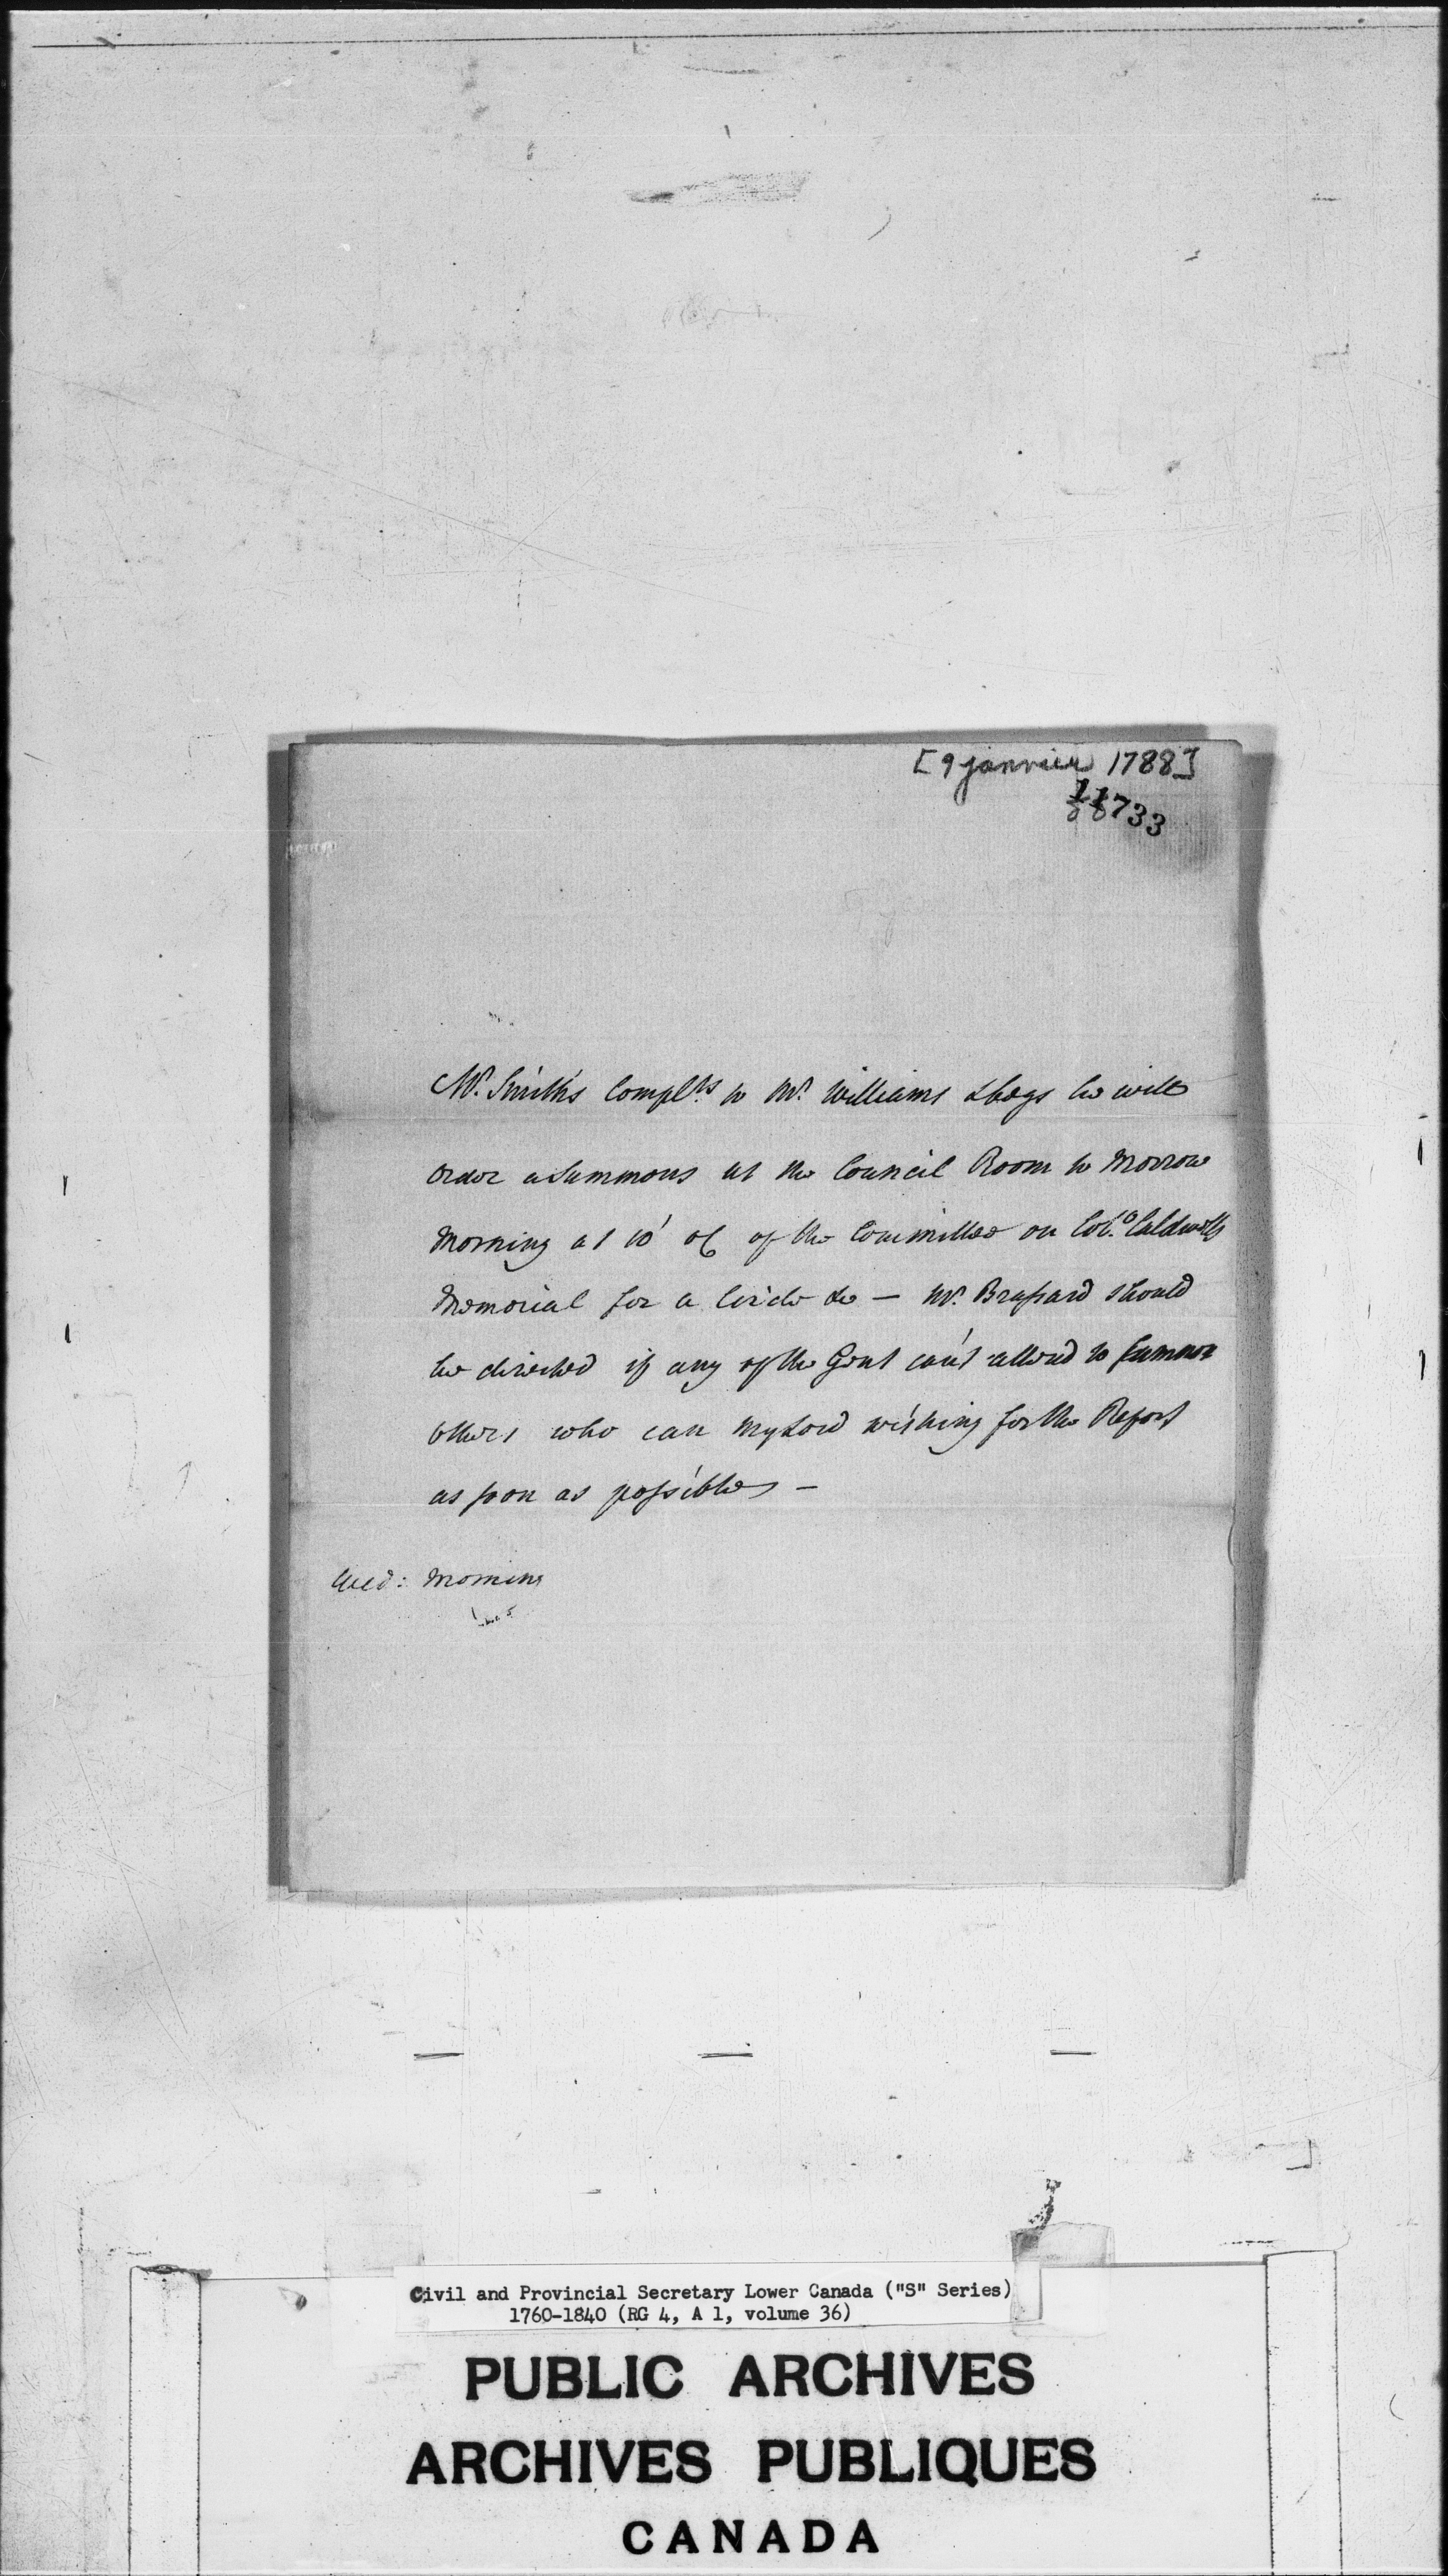 [9 janvier 1788]
11733
Mr. Smith's Complts to Mr. Williams & begs he will
order a Summons at the Council Room to Morrow
Morning at 10 of the Committee on Col. Caldwells
Memorial for a &c — Mr. Brassard should
be directed if any of the Gent can't attend to summon
others who can My Lord wishing for the Report
as soon as possible —
Wed: Morning
Civil and Provincial Secretary Lower Canada ("S" Series)
1760-1840 (RG 4, A 1, volume 36)
PUBLIC ARCHIVES
ARCHIVES PUBLIQUES
CANADA